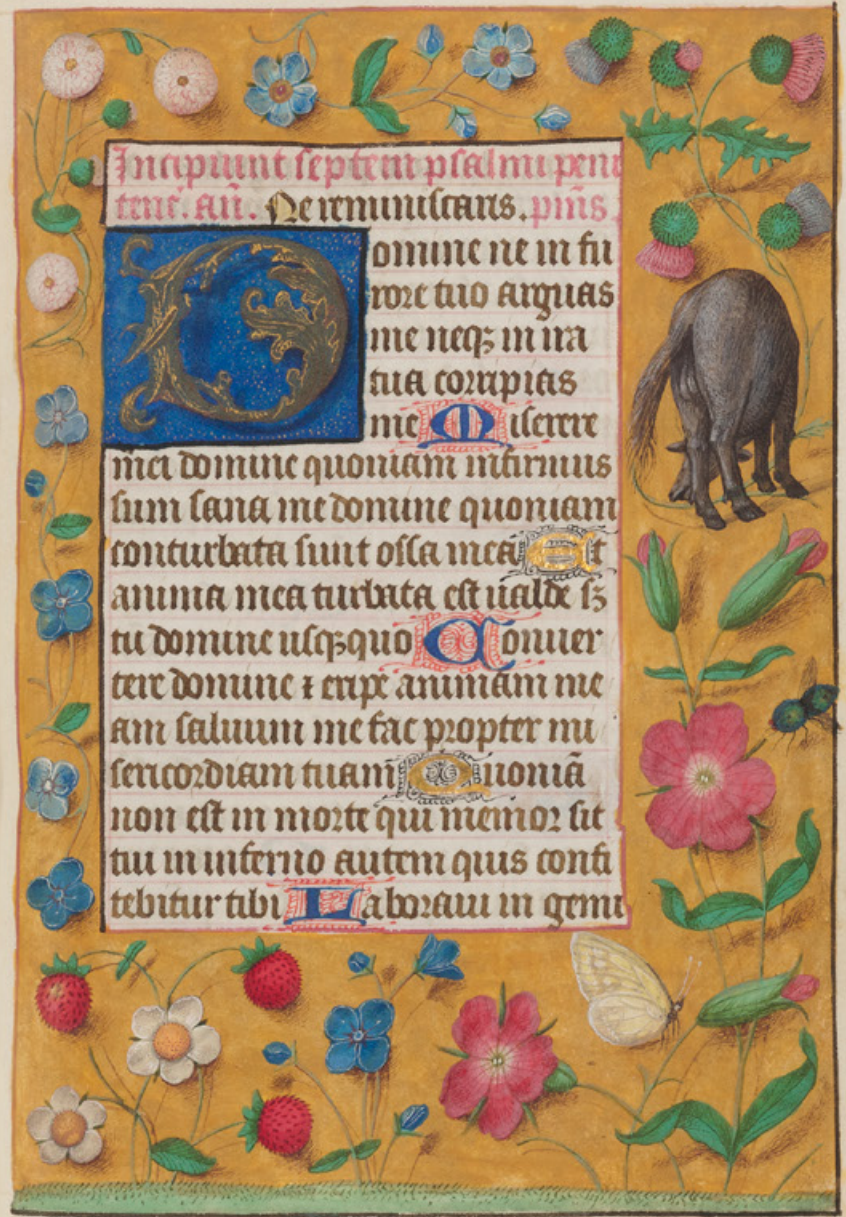 Incipiunt septem psalmi peni
tenc̃. añ. Ne reminiscaris. p̃ms
Domine ne in fu
rore tuo arguas
me neqꝫ in ira
tua corripias
me Miserere
mei domine quoniam infirmus
sum sana me domine quoniam
conturbata sunt ossa mea Et
anima mea turbata est ualde sꝫ
tu domine usqꝫquo Conuer
tere domine ⁊ eripe animam me
am saluum me fac propter mi
sericordiam tuam Quoniã
non est in morte qui memor sit
tui in inferno autem quis confi
tebitur tibi Laboraui in gemi